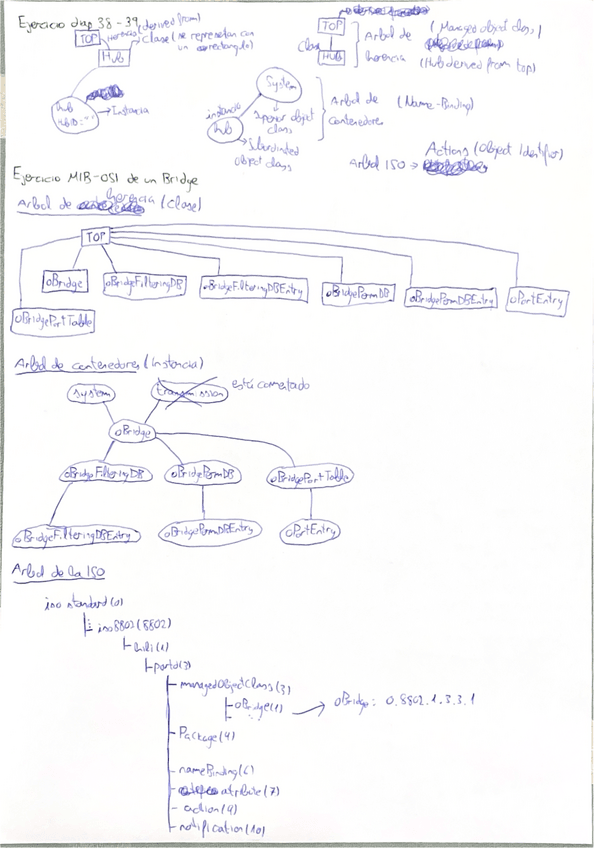 Ejercicio diap 38-39
(derived from)
TOP
herencia
Clase (se representan con
un rectangulo)
Hub
Hub
HubID=""
→ Instancia
TOP
Clase
HUB
Arbol de
herencia
(Managed object class)
(Hub derived from top)
System
instancia
hub
Superior object
class
Subordinded
object class
Arbol de
contenedores
(Name-Binding)
Arbol ISO →
Actions (Object Identifier)
Ejercicio MIB-OSI de un Bridge
Arbol de herencia (Clase)
TOP
oBridge
oBridgeFilteringDB
oBridgeFilteringDBEntry
oBridgePermDB
oBridgePermDBEntry
oPortEntry
oBridgePortTable
Arbol de contenedores (Instancia)
system
transmission
está comentado
oBridge
oBridgeFilteringDB
oBridgePermDB
oBridgePortTable
oBridgeFilteringDBEntry
oBridgePermDBEntry
oPortEntry
Arbol de la ISO
iso standard (0)
iso8802 (8802)
(1)
(3)
managedObjectClass (3)
oBridge (1)
oBridge: 0.8802.1.3.3.1
Package (4)
nameBinding (6)
attribute (7)
action (9)
notification (10)